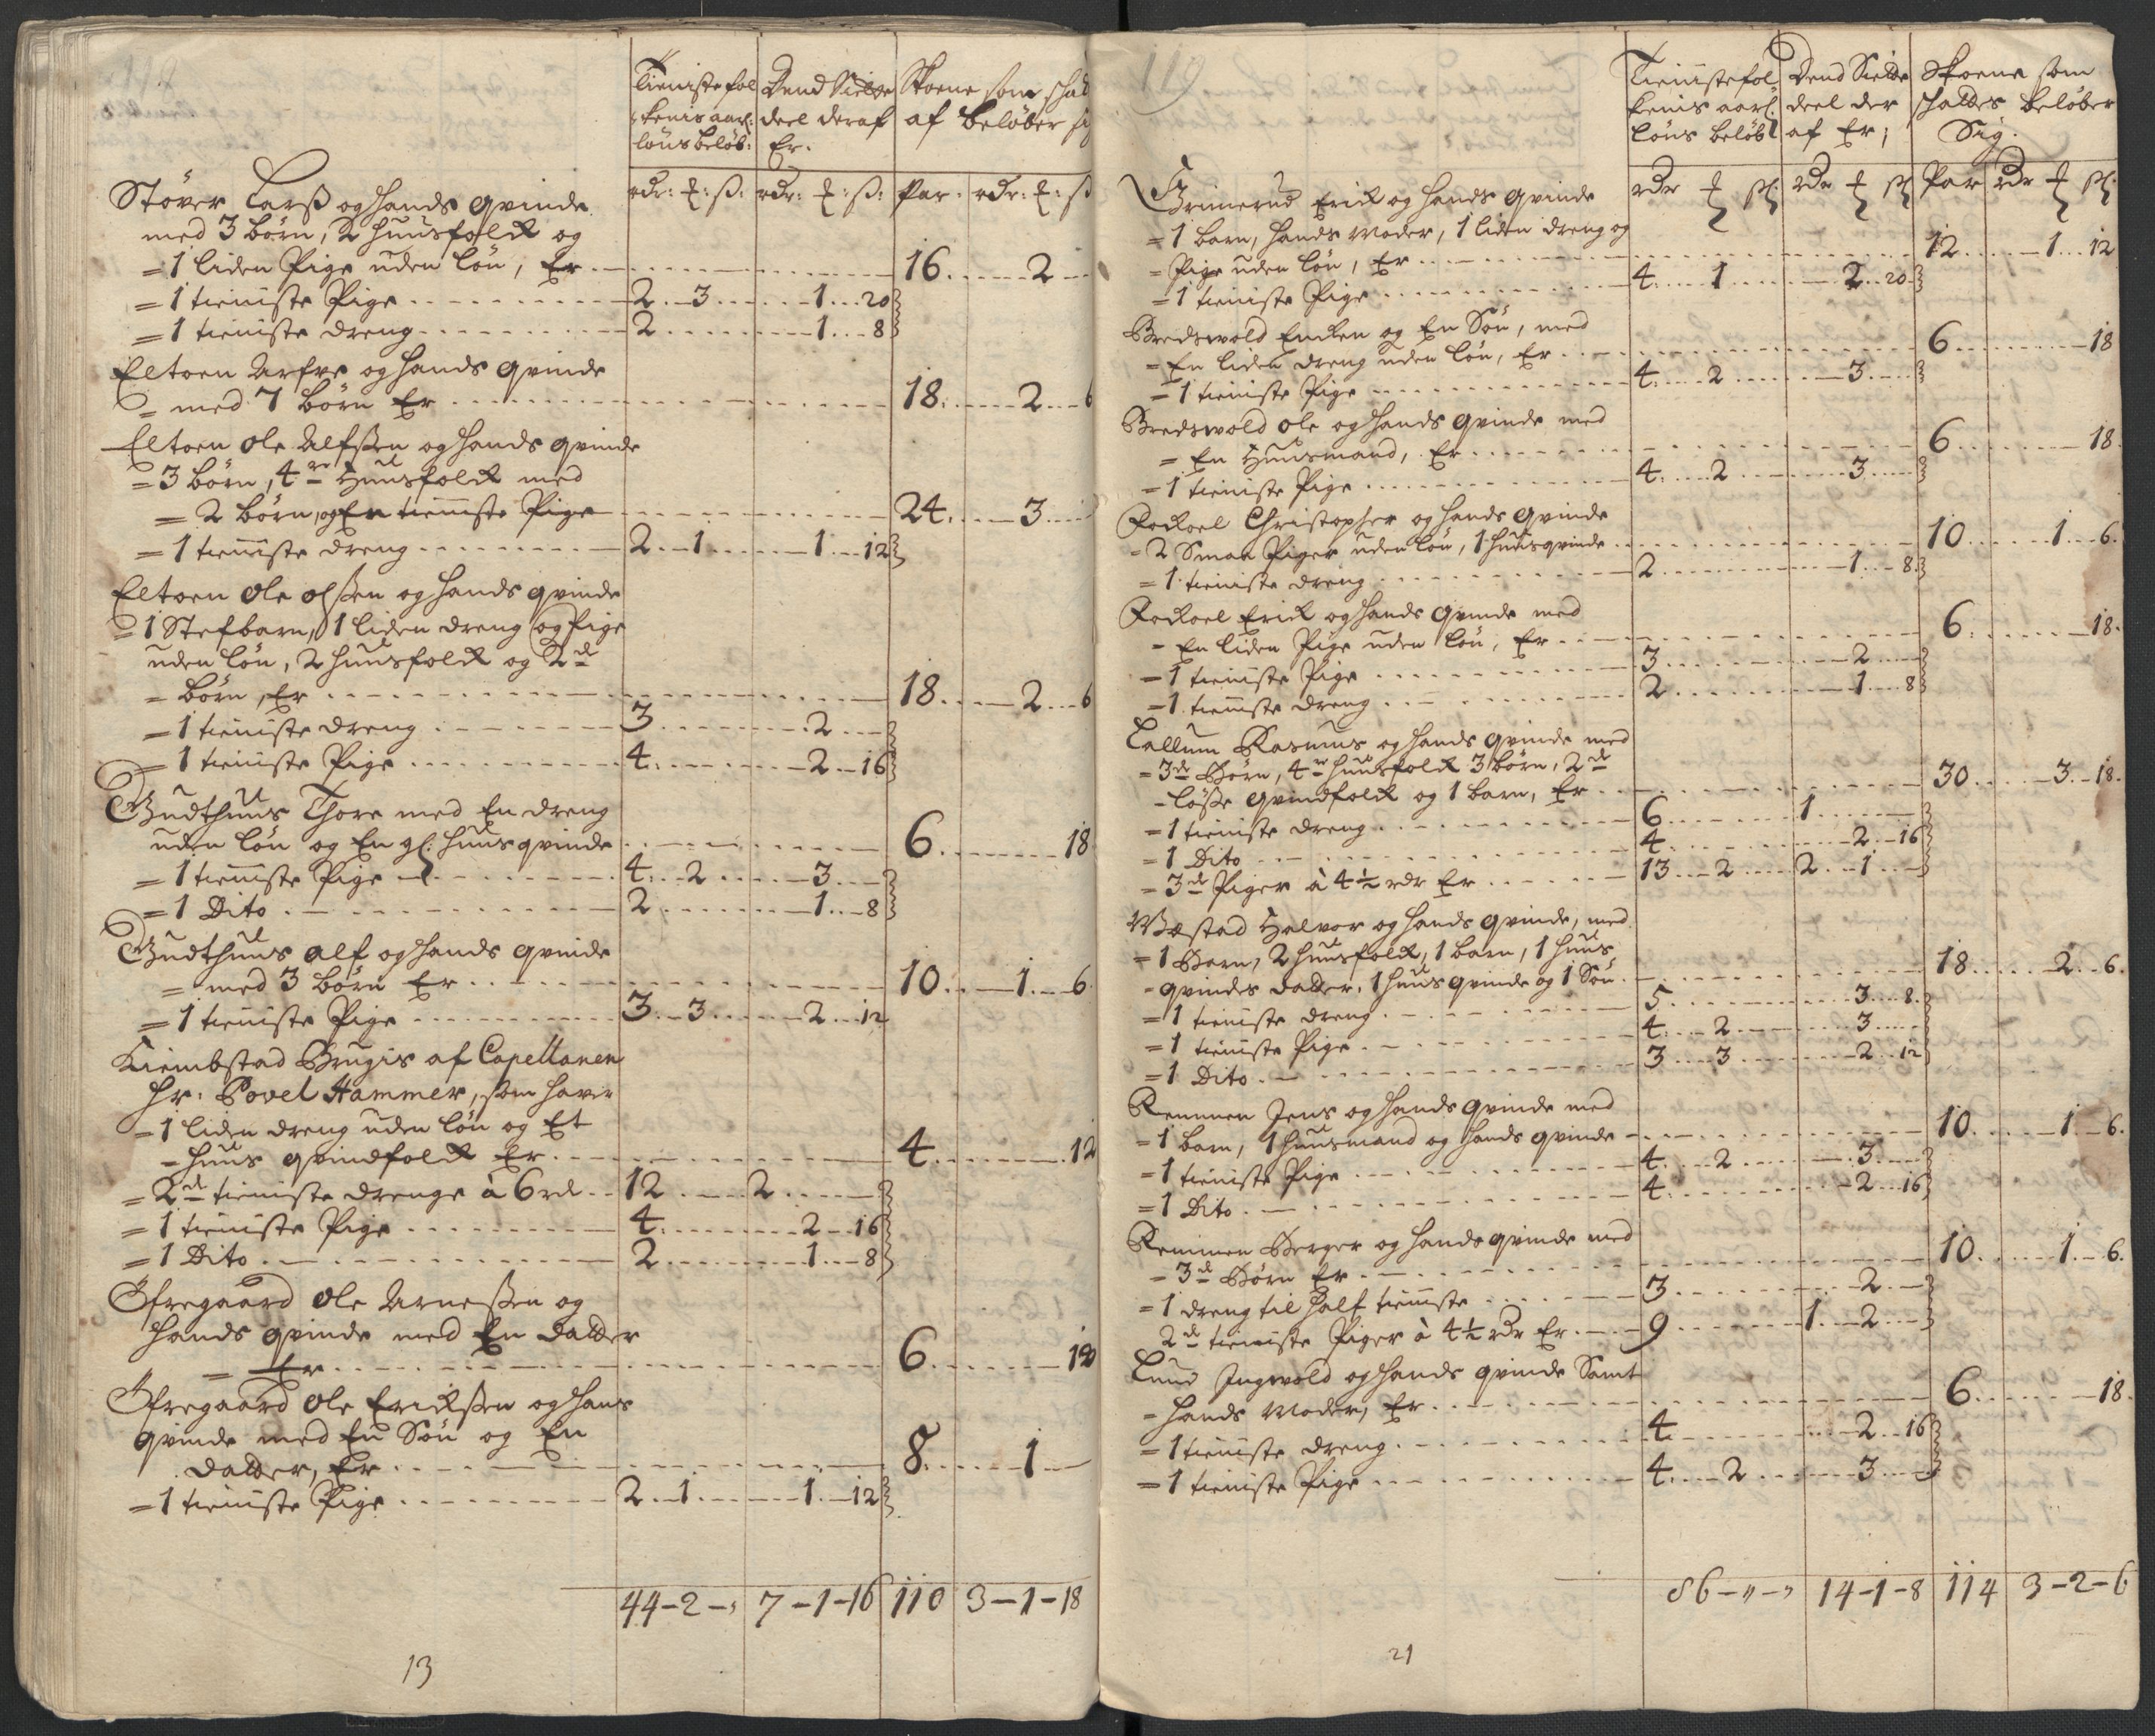 Tieniste fol Dend Siette Skoene som schal
kenis aarl: deel deraf af beløber si
løns beløb: Er.
rdr: ℔: ß: rdr: ℔: ß: Par. rdr: ℔: ß
Støver Larß og hands qvinde
med 3 børn, 2 huusfolck og
= 1 liden Pige uden løn, Er 16 2
= 1 tieniste Pige 2 3 1 20
= 1 tieniste dreng 2 1 8
Eltoen Arfve og hands qvinde
= med 7 børn Er 18 2 6
Eltoen Ole Alfsen og hands qvinde
= 3 børn, 4re Huusfolck med
= 2 børn, og En tieniste Pige 24 3
= 1 tieniste dreng 2 1 1 12
Eltoen Ole Olßen og hands qvinde
= 1 Stefbarn, 1 liden dreng og Pige
uden løn, 2 huusfolck og 2de
= børn, Er 18 2 6
= 1 tieniste dreng 3 2
= 1 tieniste Pige 4 2 16
Gudthuus Thore med En dreng
uden løn og En gl: huus qvinde 6 18
= 1 tieniste Pige 4 2 3
= 1 Dito 2 1 8
Gudthuus Alf og hands qvinde
= med 3 børn Er 10 1 6
= 1 tieniste Pige 3 3 2 12
Kiembstad Brugis af Capellanen
Hr: Povel Hammer, som haver
= 1 liden dreng uden løn og Et
= huus qvindfolck Er 4 12
= 2de tieniste drenge à 6 rd 12 2
= 1 tieniste Pige 4 2 16
= 1 Dito 2 1 8
Øfregaard Ole Arneßen og
hands qvinde med En datter
= Er 6 18
Øfregaard Ole Erickßen og hans
qvinde med En Søn og En
datter, Er 8 1
= 1 tieniste Pige 2 1 1 12
44-2-" 7-1-16 110 3-1-18
13
119
Tienistefol Dend Siette Skoene som
kenis aarl: deel der schattes beløber
løns beløb af Er; Sig.
rdr ℔ ßl: rdr ℔ ßl Par rdr ℔ ßl:
Grinnerud Erick og hands qvinde
= 1 barn, hands Moder, 1 liden dreng og
= Pige uden løn, Er 12 1 12
= 1 tieniste Pige 4 1 2 20
Bredsvold Encken og En Søn, med
= En liden dreng uden løn, Er 6 18
= 1 tieniste Pige 4 2 3
Bredsvold Ole og hands qvinde med
= En Huusmand, Er 6 18
= 1 tieniste Pige 4 2 3
Fockoel Christopher og hands qvinde
= 2 Smaa Piger uden løn, 1 huusqvinde 10 1 6
= 1 tieniste dreng 2 1 8
Fockoel Erick og hands qvinde med
- En liden Pige uden løn, Er 6 18
= 1 tieniste Pige 3 2
= 1 tieniste dreng 2 1 8
Callum Rasmus og hands qvinde med
= 3de Børn, 4re huusfolck 3 børn, 2de
- løße qvindfolck og 1 barn, Er 30 3 18
= 1 tieniste dreng 6 1
= 1 Dito 4 2 16
= 3de Piger à 4½ rdr Er 13 2 2 1
Wæstad Halvor og hands qvinde, med
= 1 Barn, 2 huusfolck, 1 barn, 1 huus
- qvindes datter, 1 huus qvinde og 1 Søn 18 2 6
= 1 tieniste dreng 5 3 8
= 1 tieniste Pige 4 2 3
= 1 Dito 3 3 2 12
Remmen Jens og hands qvinde med
= 1 barn, 1 huusmand og hands qvinde 10 1 6
= 1 tieniste Pige 4 2 3
= 1 Dito 4 2 16
Remmen Berger og hands qvinde med
= 3de Børn Er 10 1 6
= 1 dreng til half tieniste 3 2
2de tieniste Piger à 4½ rdr Er 9 1 2
Lund Ingvold og hands qvinde Samt
= hands Moder, Er 6 18
= 1 tieniste dreng 4 2 16
= 1 tieniste Pige 4 2 3
86-"-" 14-1-8 114 3-2-6
21